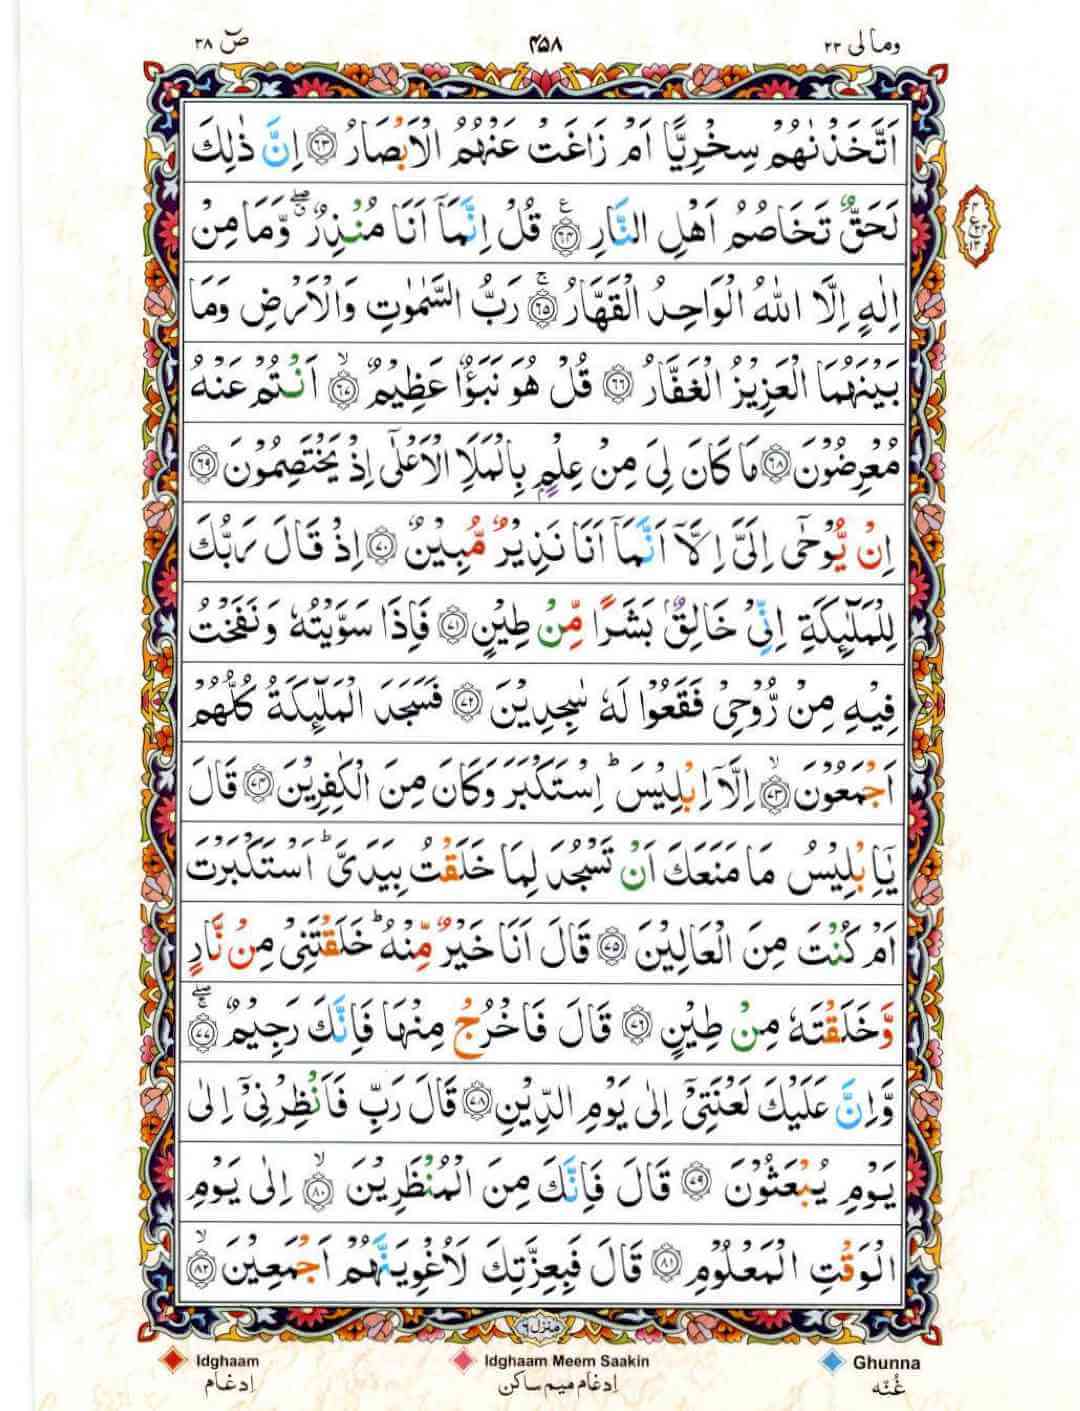 وما لی ۲۳
۴۵۸
صٓ ۳۸
اَتَّخَذْنٰهُمْ سِخْرِيًّا اَمْ زَاغَتْ عَنْهُمُ الْاَبْصَارُ ﴿۶۳﴾ اِنَّ ذٰلِكَ
لَحَقٌّ تَخَاصُمُ اَهْلِ النَّارِ ﴿۶۴﴾ قُلْ اِنَّمَاۤ اَنَا مُنْذِرٌ ۖ وَّمَا مِنْ
اِلٰهٍ اِلَّا اللّٰهُ الْوَاحِدُ الْقَهَّارُ ﴿۶۵﴾ رَبُّ السَّمٰوٰتِ وَالْاَرْضِ وَمَا
بَيْنَهُمَا الْعَزِيْزُ الْغَفَّارُ ﴿۶۶﴾ قُلْ هُوَ نَبَؤٌا عَظِيْمٌ ﴿۶۷﴾ اَنْتُمْ عَنْهُ
مُعْرِضُوْنَ ﴿۶۸﴾ مَا كَانَ لِيَ مِنْ عِلْمٍۭ بِالْمَلَاِ الْاَعْلٰۤى اِذْ يَخْتَصِمُوْنَ ﴿۶۹﴾
اِنْ يُّوْحٰۤى اِلَيَّ اِلَّاۤ اَنَّمَاۤ اَنَا نَذِيْرٌ مُّبِيْنٌ ﴿۷۰﴾ اِذْ قَالَ رَبُّكَ
لِلْمَلٰٓئِكَةِ اِنِّيْ خَالِقٌۢ بَشَرًا مِّنْ طِيْنٍ ﴿۷۱﴾ فَاِذَا سَوَّيْتُهٗ وَنَفَخْتُ
فِيْهِ مِنْ رُّوْحِيْ فَقَعُوْا لَهٗ سٰجِدِيْنَ ﴿۷۲﴾ فَسَجَدَ الْمَلٰٓئِكَةُ كُلُّهُمْ
اَجْمَعُوْنَ ﴿۷۳﴾ اِلَّاۤ اِبْلِيْسَ ؕ اِسْتَكْبَرَ وَكَانَ مِنَ الْكٰفِرِيْنَ ﴿۷۴﴾ قَالَ
يٰۤاِبْلِيْسُ مَا مَنَعَكَ اَنْ تَسْجُدَ لِمَا خَلَقْتُ بِيَدَيَّ ؕ اَسْتَكْبَرْتَ
اَمْ كُنْتَ مِنَ الْعَالِيْنَ ﴿۷۵﴾ قَالَ اَنَا خَيْرٌ مِّنْهُ ؕ خَلَقْتَنِيْ مِنْ نَّارٍ
وَّخَلَقْتَهٗ مِنْ طِيْنٍ ﴿۷۶﴾ قَالَ فَاخْرُجْ مِنْهَا فَاِنَّكَ رَجِيْمٌ ﴿۷۷﴾
وَّاِنَّ عَلَيْكَ لَعْنَتِيْۤ اِلٰى يَوْمِ الدِّيْنِ ﴿۷۸﴾ قَالَ رَبِّ فَاَنْظِرْنِيْۤ اِلٰى
يَوْمِ يُبْعَثُوْنَ ﴿۷۹﴾ قَالَ فَاِنَّكَ مِنَ الْمُنْظَرِيْنَ ﴿۸۰﴾ اِلٰى يَوْمِ
الْوَقْتِ الْمَعْلُوْمِ ﴿۸۱﴾ قَالَ فَبِعِزَّتِكَ لَاُغْوِيَنَّهُمْ اَجْمَعِيْنَ ﴿۸۲﴾
منزل ۶
Idghaam Idghaam Meem Saakin Ghunna
اِدغام اِدغام میم ساکن غُنّه